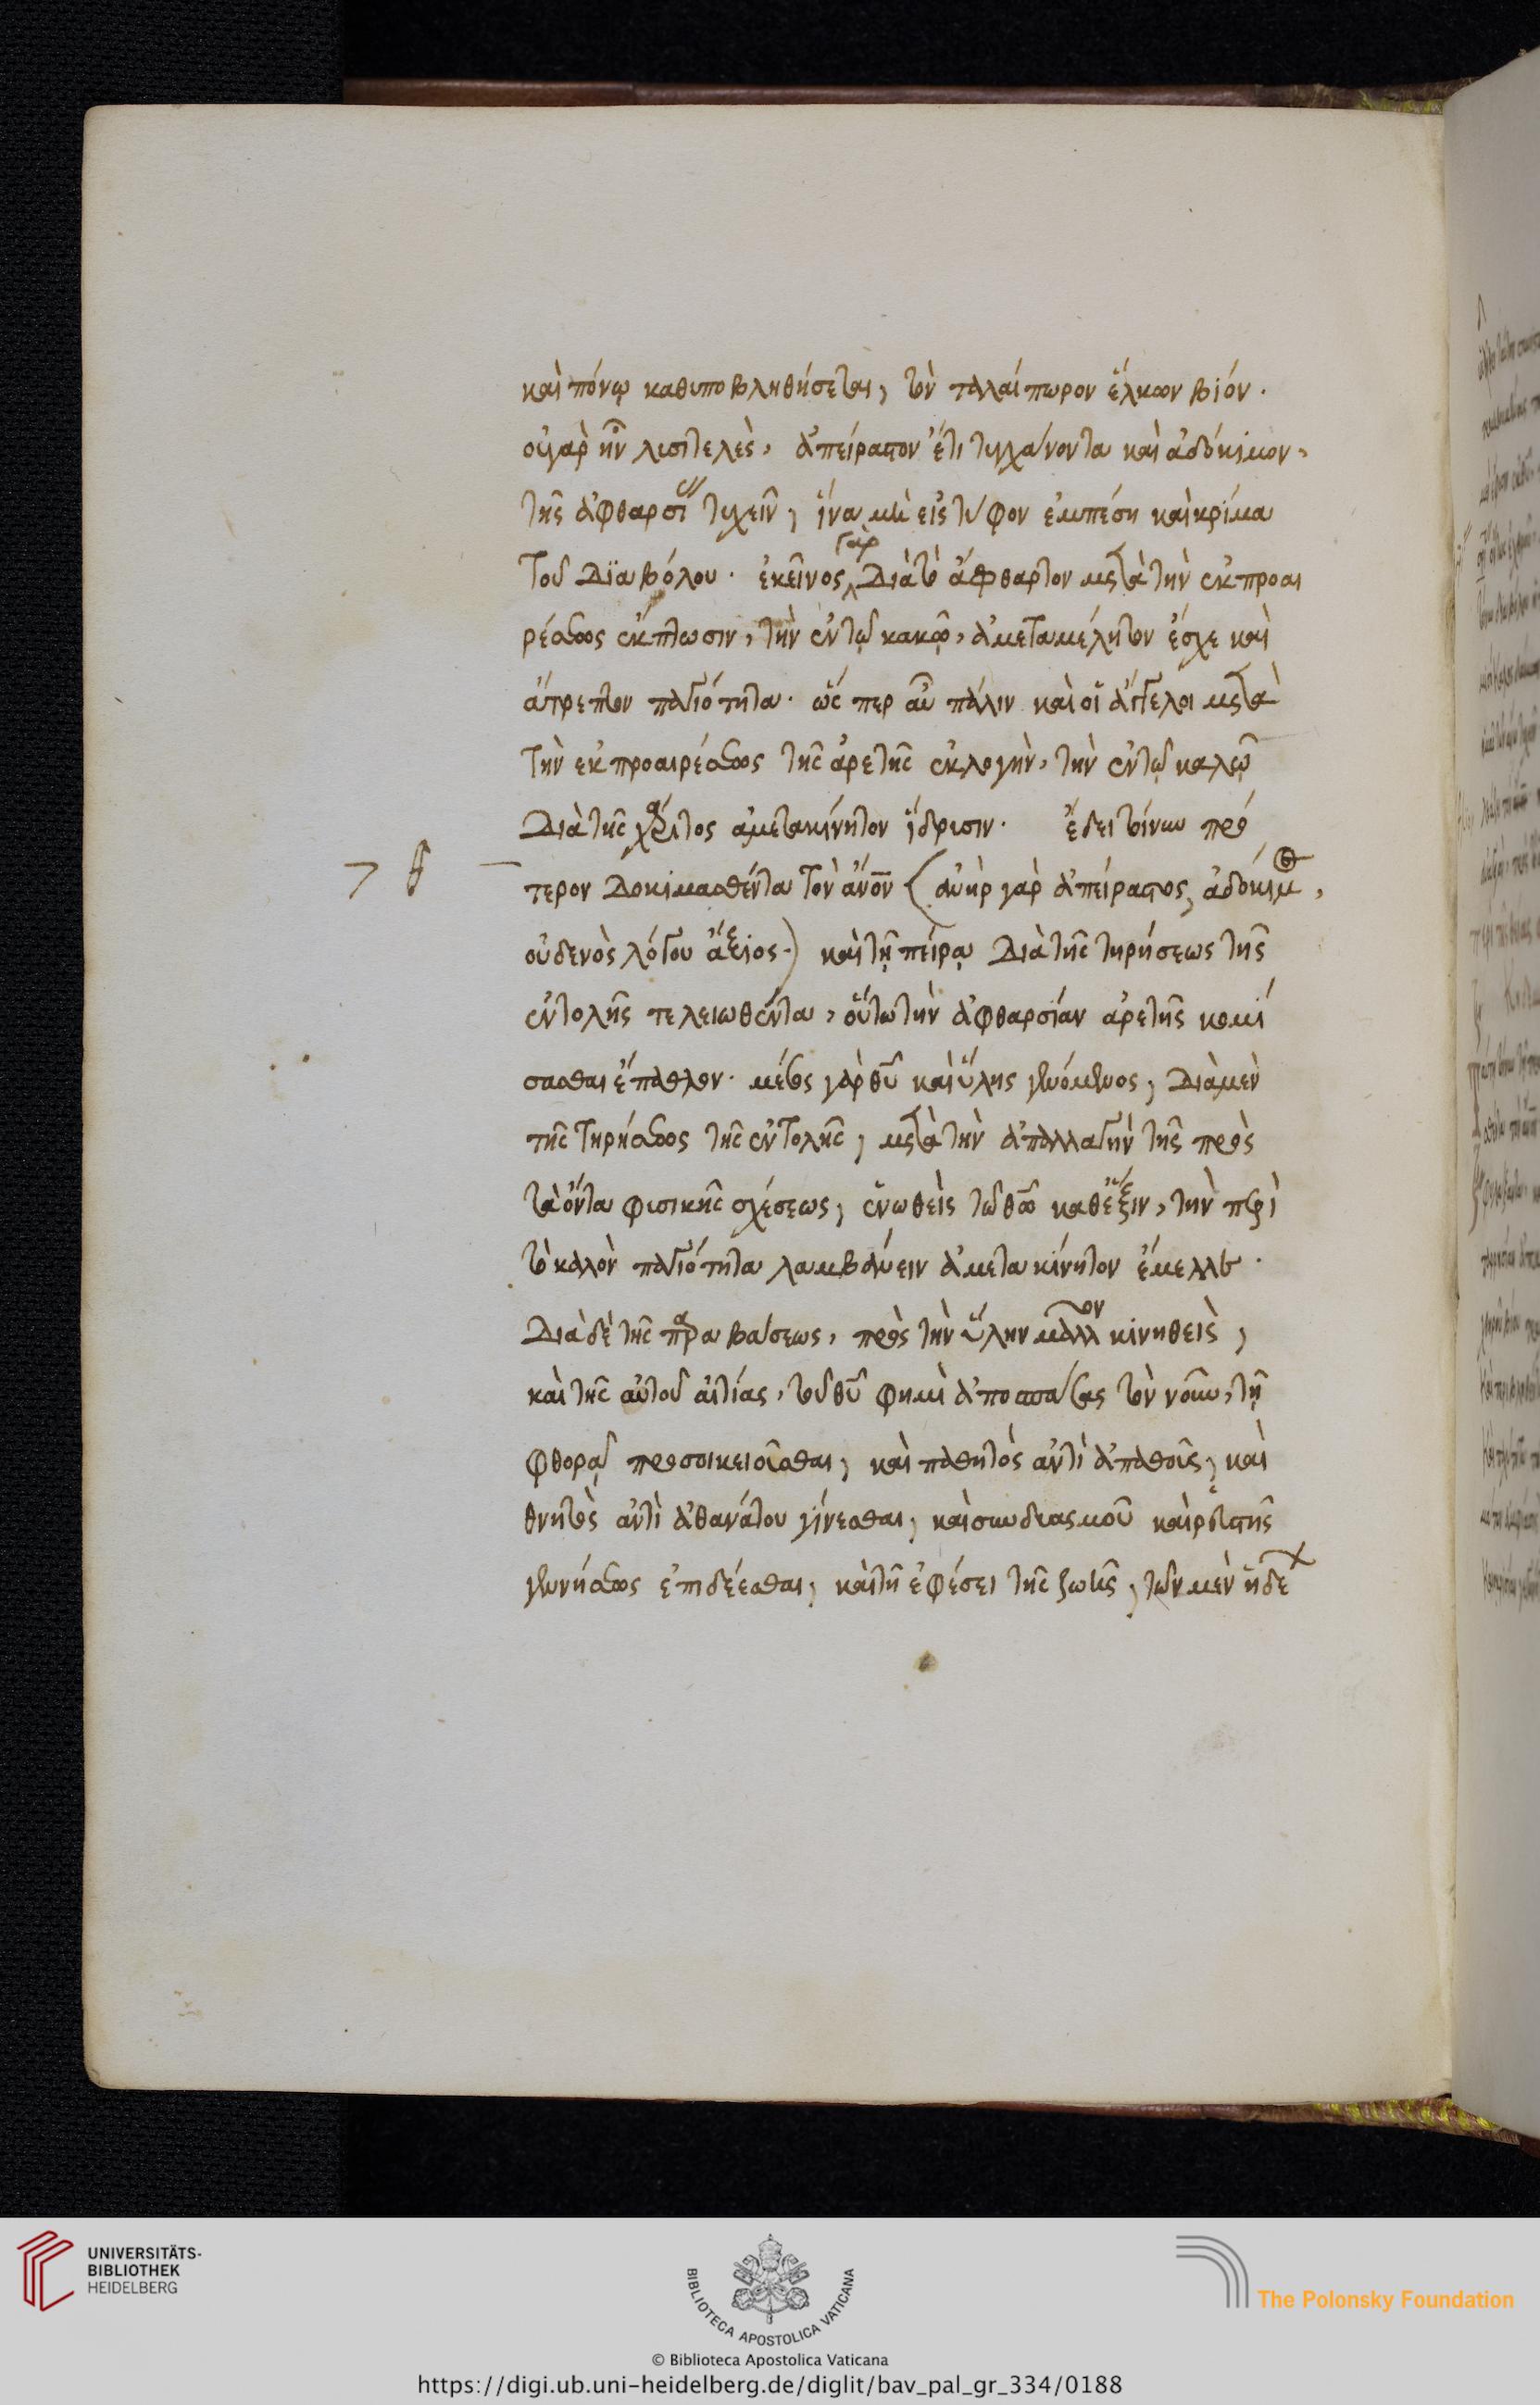 καὶ πόνῳ καθυποβληθήσεται, τὸν ταλαίπωρον ἕλκων βίον.
οὐ γὰρ ἦν λυσιτελὲς, ἀπείραστον ἔτι τυγχάνοντα καὶ ἀδόκιμον,
τῆς ἀφθαρσί τυχεῖν, ἵνα μὴ εἰς τύφον ἐμπέση καὶ κρίμα
τοῦ Διαβόλου. ἐκεῖνος γὰρ Διὰ τὸ ἄφθαρτον μετὰ τὴν ἐκ προαι
ρέσεως ἔκπτωσιν, τὴν ἐν τῷ κακῷ, ἀμεταμέλητον ἔσχε καὶ
ἄτρεπτον παγιότητα. ὥς περ αὖ πάλιν καὶ οἱ ἄγγελοι μετὰ
τὴν ἐκ προαιρέσεως τῆς ἀρετῆς ἐκλογὴν, τὴν ἐν τῷ καλῷ
Διὰ τῆς χάριτος ἀμετακίνητον ἵδρυσιν. ἔδει τοίνυν πρό
τερον Δοκιμασθέντα τὸν ἄνον (ἀνὴρ γὰρ ἀπείραστος, ἀδόκιμος,
οὐδενὸς λόγου ἄξιος.) καὶ τῇ πείρᾳ Διὰ τῆς τηρήσεως τῆς
ἐντολῆς τελειωθέντα, οὕτω τὴν ἀφθαρσίαν ἀρετῆς κομί
σασθαι ἔπαθλον. μέσος γὰρ θυ καὶ ὕλης γενόμενος, Διὰ μὲν
τῆς τηρήσεως τῆς ἐντολῆς, μετὰ τὴν ἀπαλλαγὴν τῆς πρὸς
τὰ ὄντα φυσικῆς σχέσεως, ἑνωθεὶς τῷ θῷ καθ' ἕξιν, τὴν περὶ
τὸ καλὸν παγιότητα λαμβάνειν ἀμετακίνητον ἔμελλε.
Διὰ δὲ τῆς παραβάσεως, πρὸς τὴν ὕλην μᾶλλον κινηθεὶς,
καὶ τῆς αὐτοῦ αἰτίας, τοῦ θυ φημὶ ἀποσπάσας τὸν νοῦν, τῇ
φθορᾷ προσοικειοῦσθαι, καὶ παθητὸς ἀντὶ ἀπαθοῦς, καὶ
θνητὸς ἀντὶ ἀθανάτου γίνεσθαι, καὶ συνδυασμοῦ καὶ ῥευστῆς
γεννήσεως ἐπιδέεσθαι, καὶ τῇ ἐφέσει τῆς ζωῆς, τῶν μὲν ἡδέ
θ
UNIVERSITÄTS-
BIBLIOTHEK
HEIDELBERG
BIBLIOTECA APOSTOLICA VATICANA
The Polonsky Foundation
© Biblioteca Apostolica Vaticana
https://digi.ub.uni-heidelberg.de/diglit/bav_pal_gr_334/0188